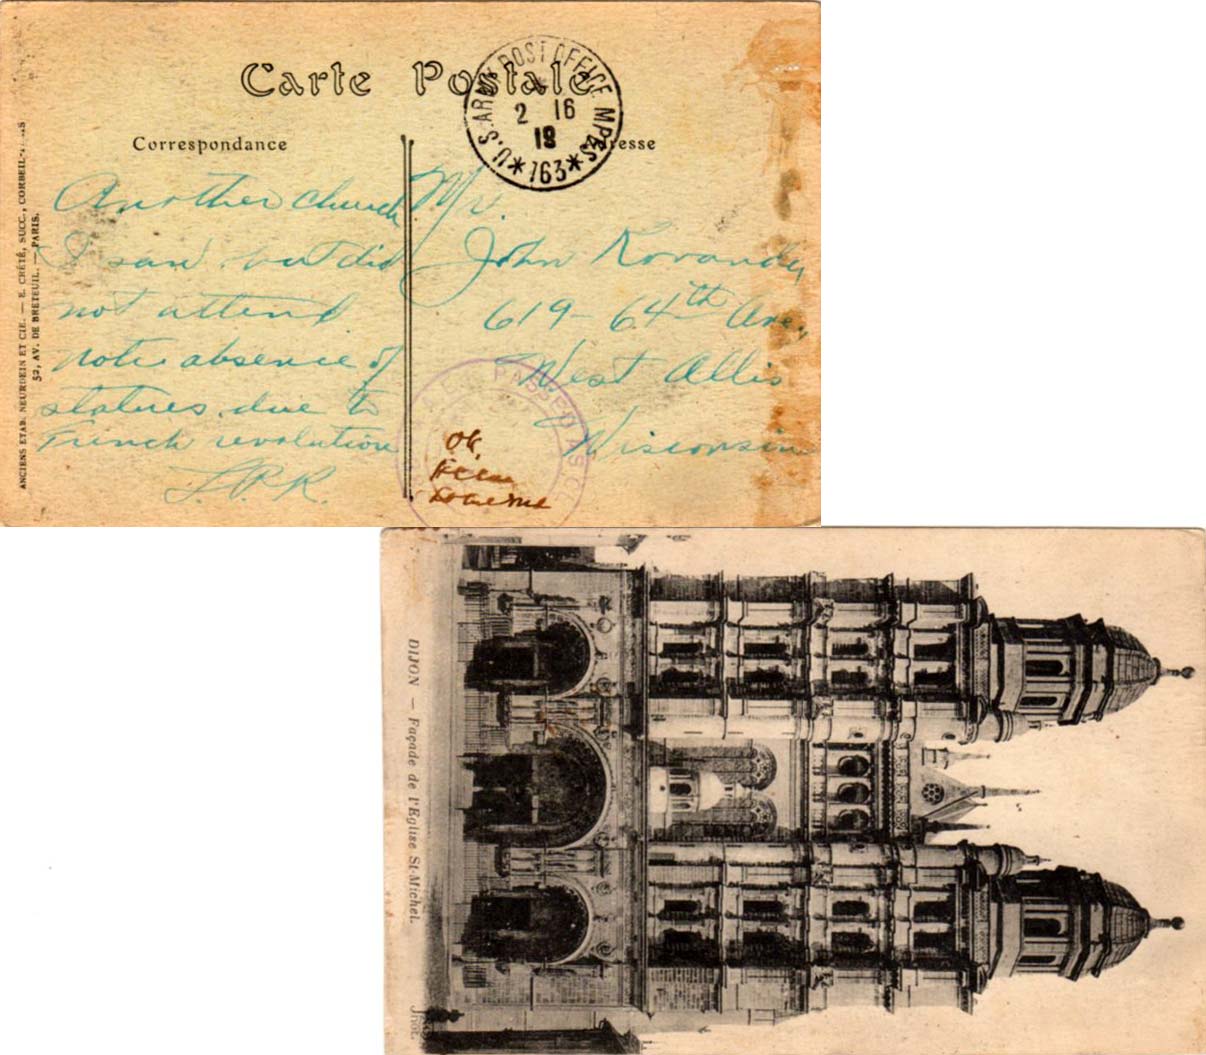 Carte Postale
U.S. ARMY POST OFFICE MPES
2 16
19
*763*
Correspondance
Adresse
ANCIENS ETAB. NEURDEIN ET CIE. — E. CRÉTÉ, SUCC., CORBEIL
52, AV. DE BRETEUIL. — PARIS.
Another church
I saw but did
not attend
note absence of
statues due to
French revolution
Mr.
John Kovanda
619 - 64th Ave.
West Allis
Wisconsin
A.E.F. PASSED AS CE
OK
DIJON — Façade de l'Eglise St-Michel.